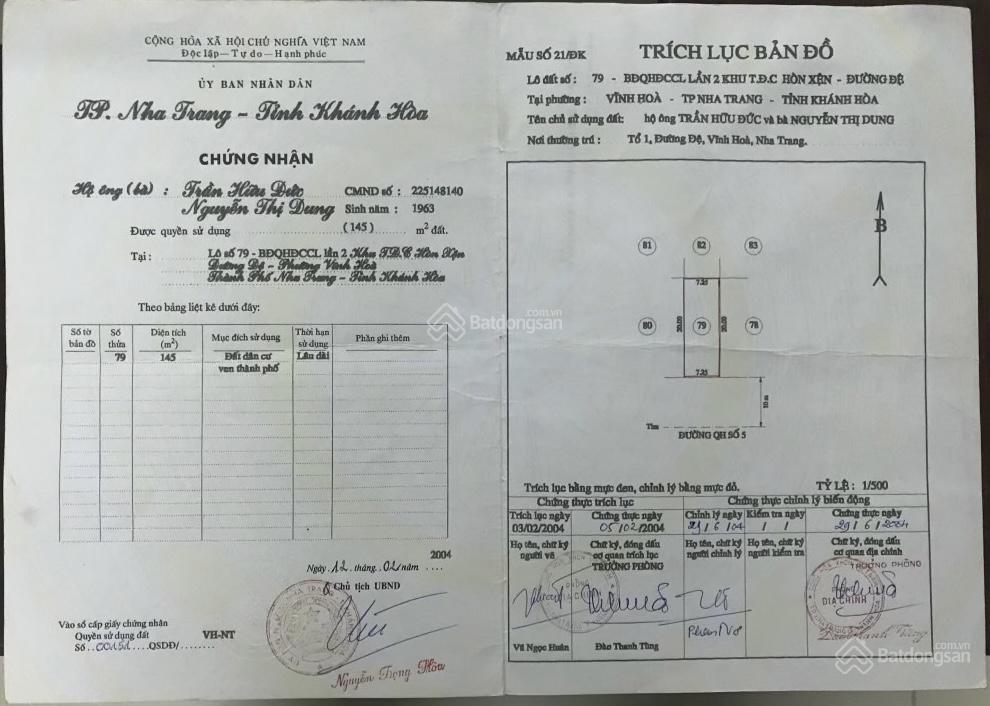 CỘNG HÒA XÃ HỘI CHỦ NGHĨA VIỆT NAM
Độc lập — Tự do — Hạnh phúc
ỦY BAN NHÂN DÂN
TP. Nha Trang - Tỉnh Khánh Hòa
CHỨNG NHẬN
Hộ ông (bà) : Trần Hữu Đức CMND số : 225148140
Nguyễn Thị Dung Sinh năm : 1963
Được quyền sử dụng (145) m² đất.
Tại : Lô số 79 - BĐQHĐCCL lần 2 Khu T.Đ.C Hòn Xện
Đường Đệ - Phường Vĩnh Hoà
Thành Phố Nha Trang - Tỉnh Khánh Hòa
Theo bảng liệt kê dưới đây:
Số tờ bản đồ
Số thửa
Diện tích (m²)
Mục đích sử dụng
Thời hạn sử dụng
Phần ghi thêm
79 145 Đất dân cư Lâu dài
ven thành phố
2004
Ngày 12 tháng 02 năm
Chủ tịch UBND
Vào sổ cấp giấy chứng nhận
Quyền sử dụng đất VH-NT
Số QSDĐ/
Nguyễn Trọng Hòa
MẪU SỐ 21/ĐK TRÍCH LỤC BẢN ĐỒ
Lô đất số : 79 - BĐQHĐCCL LẦN 2 KHU T.Đ.C HÒN XỆN - ĐƯỜNG ĐỆ
Tại phường : VĨNH HOÀ - TP NHA TRANG - TỈNH KHÁNH HÒA
Tên chủ sử dụng đất: hộ ông TRẦN HỮU ĐỨC và bà NGUYỄN THỊ DUNG
Nơi thường trú : Tổ 1, Đường Đệ, Vĩnh Hoà, Nha Trang.
B
81 82 83
7.25
80 20.00 79 20.00 78
7.25
10m
Tim
ĐƯỜNG QH SỐ 5
Trích lục bằng mực đen, chỉnh lý bằng mực đỏ. TỶ LỆ : 1/500
Chứng thực trích lục Chứng thực chỉnh lý biến động
Trích lục ngày Chứng thực ngày Chỉnh lý ngày Kiểm tra ngày Chứng thực ngày
03/02/2004 05/02/2004 21/6/04 / / 29/6/2004
Họ tên, chữ ký người vẽ
Chữ ký, đóng dấu cơ quan trích lục
Họ tên, chữ ký người chỉnh lý
Họ tên, chữ ký người kiểm tra
Chữ ký, đóng dấu cơ quan địa chính
TRƯỞNG PHÒNG TRƯỞNG PHÒNG
PHÒNG
ĐỊA CHÍNH
ĐỊA CHÍNH
Vũ Ngọc Huân Đào Thanh Tùng
Đào Thanh Tùng
Batdongsan .com.vn
Batdongsan .com.vn